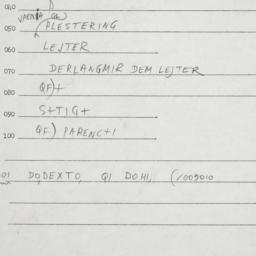 040 D
VAERVIA QF)
050 (PLESTERING
060 LEJTER
070 DERLANGMIR DEM LEJTER
080 QF)+
090 S+TIG+
100 QF) PARENC+1
01 DO, DEXTO, QI DOHI, (1009010